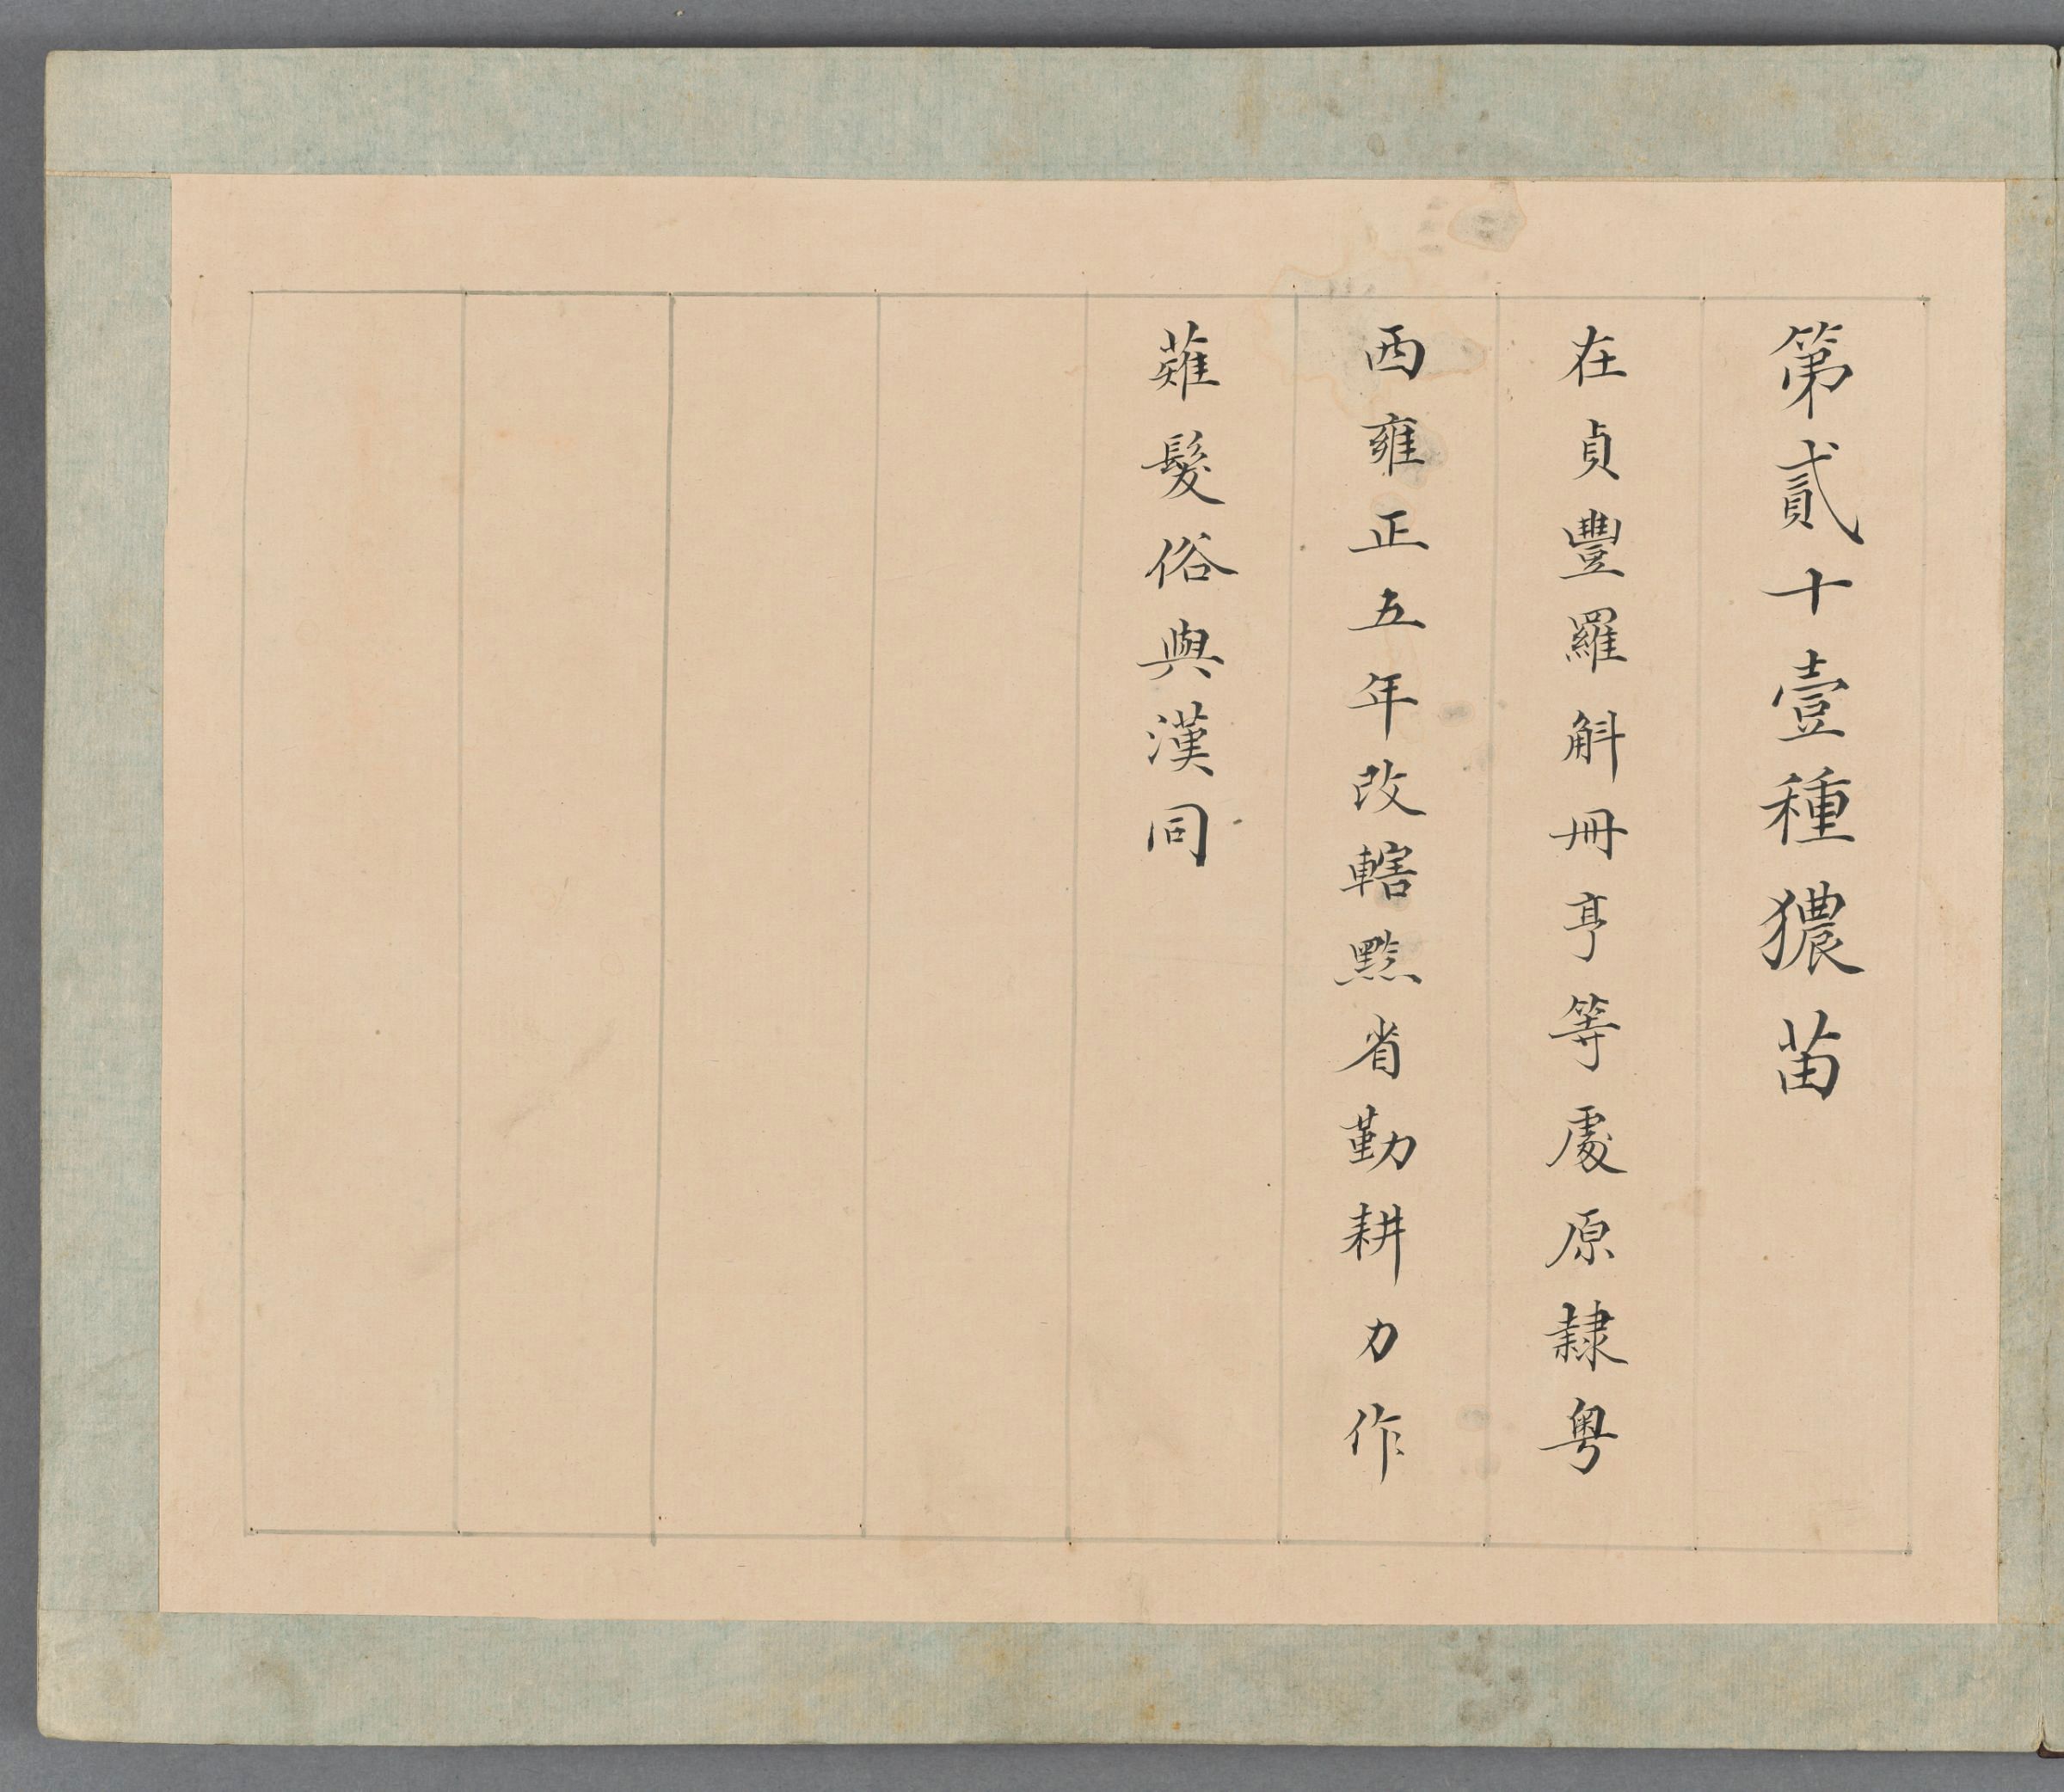 第貳十壹種獽苗
在貞豐羅斛冊亨等處原隸粤
西雍正五年改轄黔省勤耕力作
薙髮俗與漢同